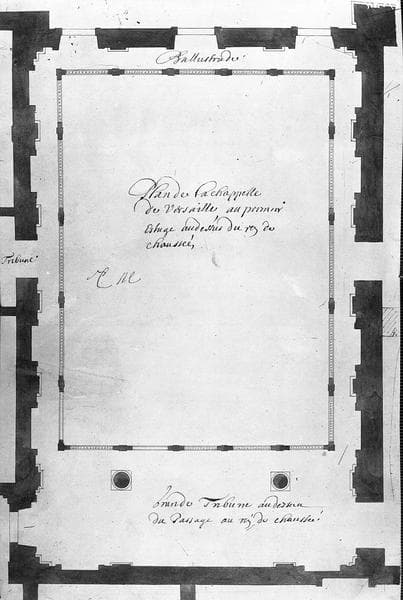 Ballustrade
Plan de la chappelle
de Versaille au premier
Estage audessus du rez de
chaussée
Tribune
Grande Tribune audessus
du Passage au rez de chaussée